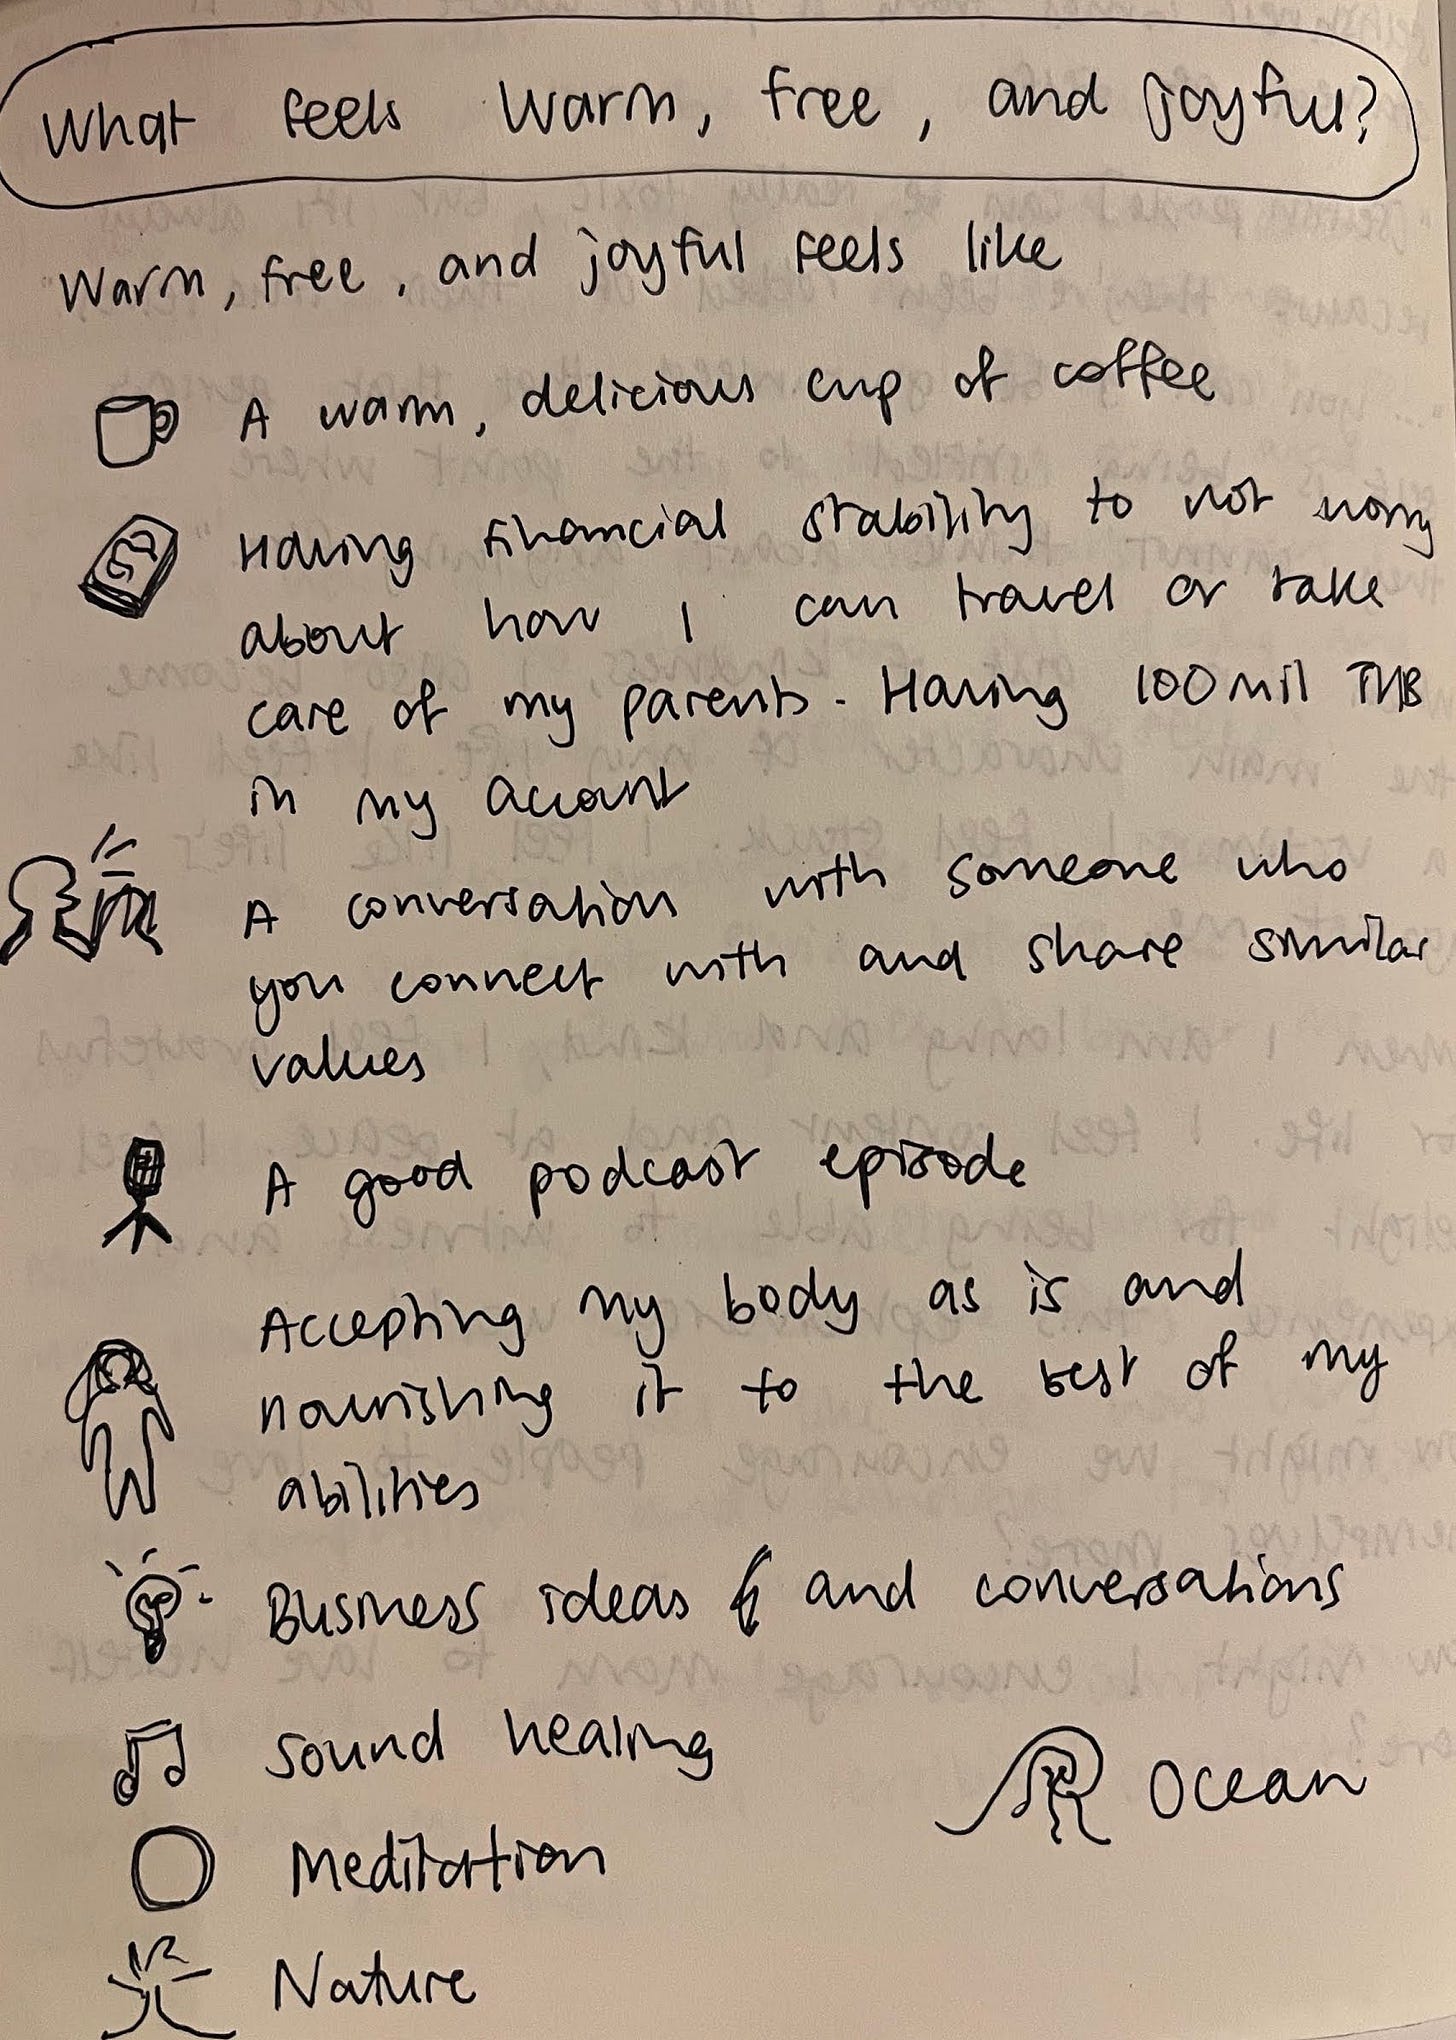 What feels warm, free, and joyful?
Warm, free, and joyful feels like
A warm, delicious cup of coffee
Having financial stability to not worry
about how I can travel or take
care of my parents. Having 100 mil THB
in my account
A conversation with someone who
you connect with and share similar
values
A good podcast episode
Accepting my body as is and
nourishing it to the best of my
abilities
Business ideas and conversations
Sound healing
Ocean
Meditation
Nature